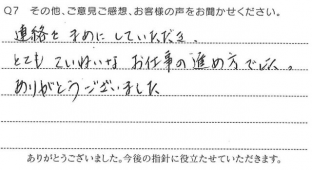 Q7 その他、ご意見ご感想、お客様の声をお聞かせください。
連絡をまめにしていただき、
とてもていねいなお仕事の進め方でした。
ありがとうございました
ありがとうございました。今後の指針に役立たせていただきます。